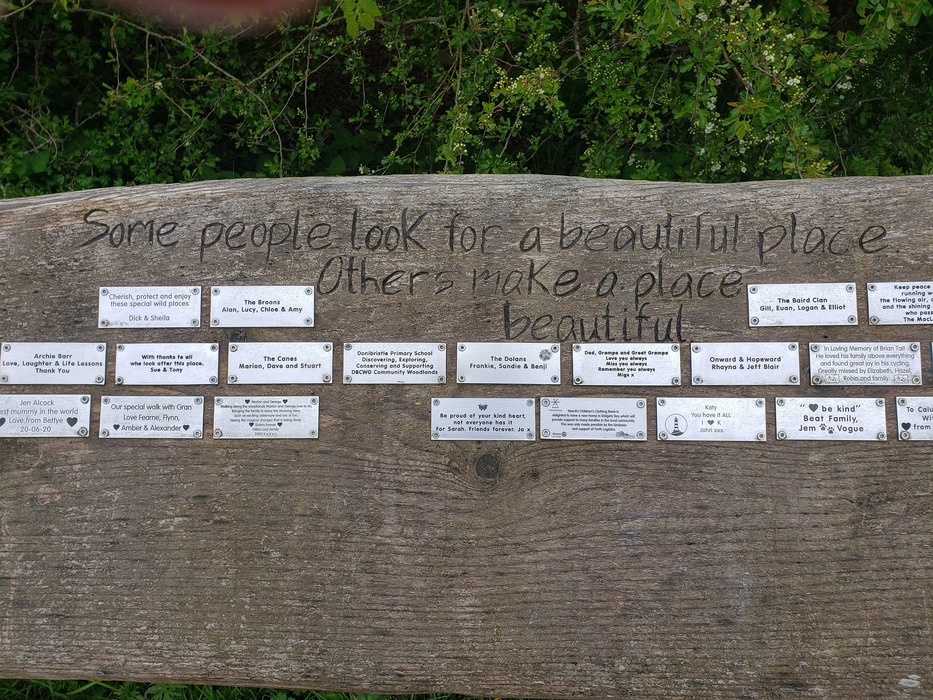 Some people look for a beautiful place.
Others make a place
beautiful
Cherish, protect and enjoy
these special wild places
Dick & Sheila
The Broons
Alan, Lucy, Chloe & Amy
The Baird Clan
Gill, Euan, Logan & Elliot
Keep peace
running w
the flowing air,
and the shining
who pass
The MacL
Archie Barr
Love, Laughter & Life Lessons
Thank You
With thanks to all
who look after this place,
Sue & Tony
The Canes
Marion, Dave and Stuart
Donibristle Primary School
Discovering, Exploring,
Conserving and Supporting
DBCWG Community Woodlands
The Dolans
Frankie, Sandie & Banji
Dad, Grampa and Great Grampa
Love you always
Miss you always
Remember you always
Migs x
Onward & Hopeward
Rhayna & Jeff Blair
In Loving Memory of Brian Tait
He loved his family above everything
and found great joy in his cycling
Greatly missed by Elizabeth, Hazel,
Robin and family
Jen Alcock
est mummy in the world
Love from Betty
20-06-20
Our special walk with Gran
Love Fearne, Flynn,
Amber & Alexander
Be proud of your kind heart,
not everyone has it
For Sarah. Friends forever. Jo x
Katy
You have it ALL
I ♥ K
John xxx
"♥ be kind"
Beat Family,
Jem Vogue
To Calu
Wi
from